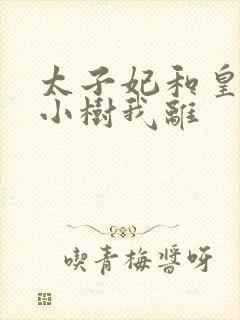 太子妃和皇
小樹我離
喫青梅醬呀